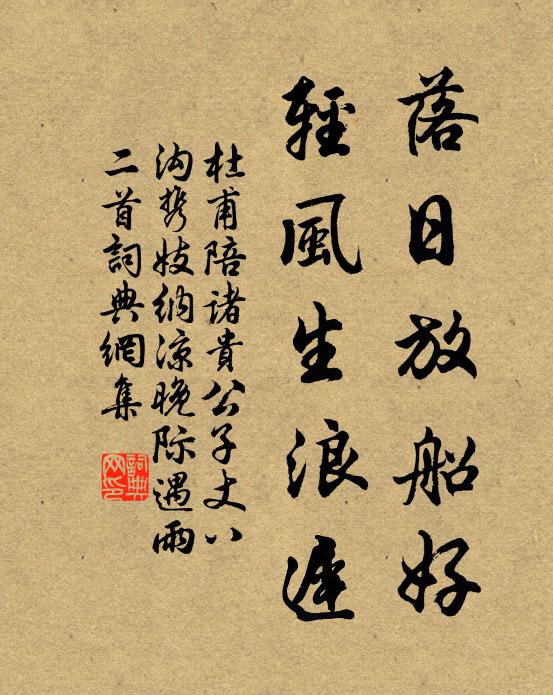 落日放船好
輕風生浪遲
杜甫陪诸貴公子丈八
沟携妓纳凉晚际遇雨
二首詞典網集
詞典
网印